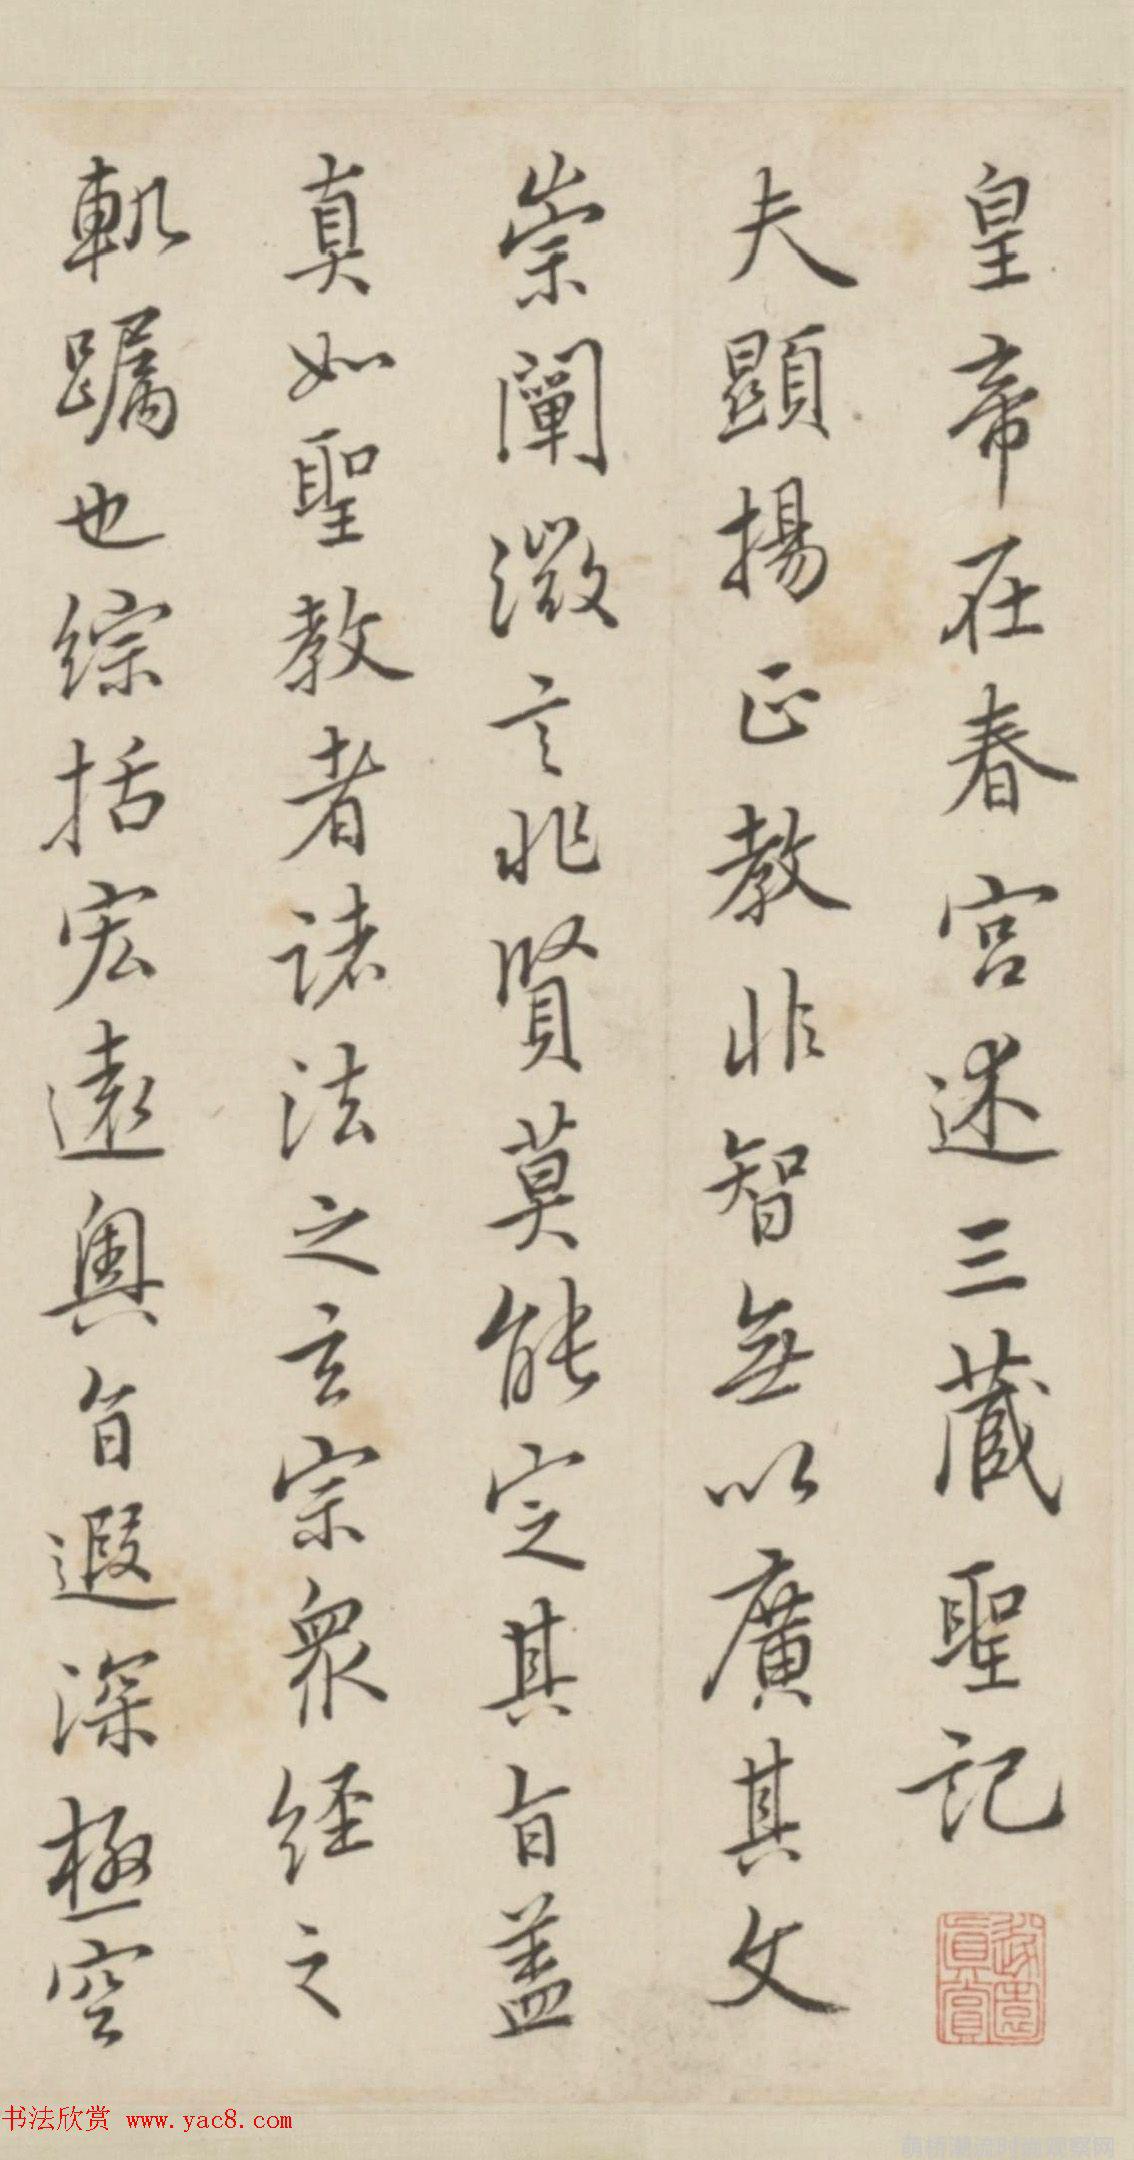 皇帝在春宮述三藏聖記
夫顯揚正教非智無以廣其文
崇闡微言非賢莫能定其旨蓋
真如聖教者諸法之玄宗眾經之
軌躅也綜括宏遠奧旨遐深極空
真賞
书法欣赏 www.yac8.com